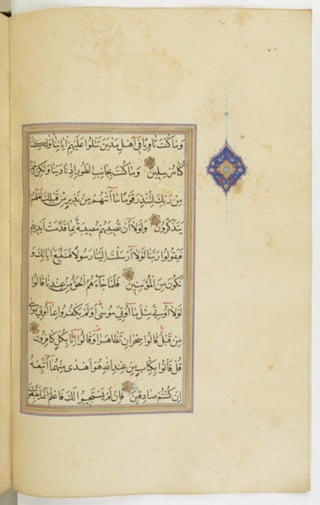 وَمَا كُنْتَ ثَاوِيًا فِي أَهْلِ مَدْيَنَ تَتْلُوا عَلَيْهِمْ آيَاتِنَا وَلَكِنَّا
كُنَّا مُرْسِلِينَ وَمَا كُنْتَ بِجَانِبِ الطُّورِ إِذْ نَادَيْنَا وَلَكِنْ رَحْمَةً
مِنْ رَبِّكَ لِتُنْذِرَ قَوْمًا مَا أَتَاهُمْ مِنْ نَذِيرٍ مِنْ قَبْلِكَ لَعَلَّهُمْ
يَتَذَكَّرُونَ وَلَوْلَا أَنْ تُصِيبَهُمْ مُصِيبَةٌ بِمَا قَدَّمَتْ أَيْدِيهِمْ
فَيَقُولُوا رَبَّنَا لَوْلَا أَرْسَلْتَ إِلَيْنَا رَسُولًا فَنَتَّبِعَ آيَاتِكَ وَ
نَكُونَ مِنَ الْمُؤْمِنِينَ فَلَمَّا جَاءَهُمُ الْحَقُّ مِنْ عِنْدِنَا قَالُوا
لَوْلَا أُوتِيَ مِثْلَ مَا أُوتِيَ مُوسَى أَوَلَمْ يَكْفُرُوا بِمَا أُوتِيَ مُوسَى
مِنْ قَبْلُ قَالُوا سِحْرَانِ تَظَاهَرَا وَقَالُوا إِنَّا بِكُلٍّ كَافِرُونَ
قُلْ فَأْتُوا بِكِتَابٍ مِنْ عِنْدِ اللَّهِ هُوَ أَهْدَى مِنْهُمَا أَتَّبِعْهُ
إِنْ كُنْتُمْ صَادِقِينَ فَإِنْ لَمْ يَسْتَجِيبُوا لَكَ فَاعْلَمْ أَنَّمَا يَتَّبِعُونَ